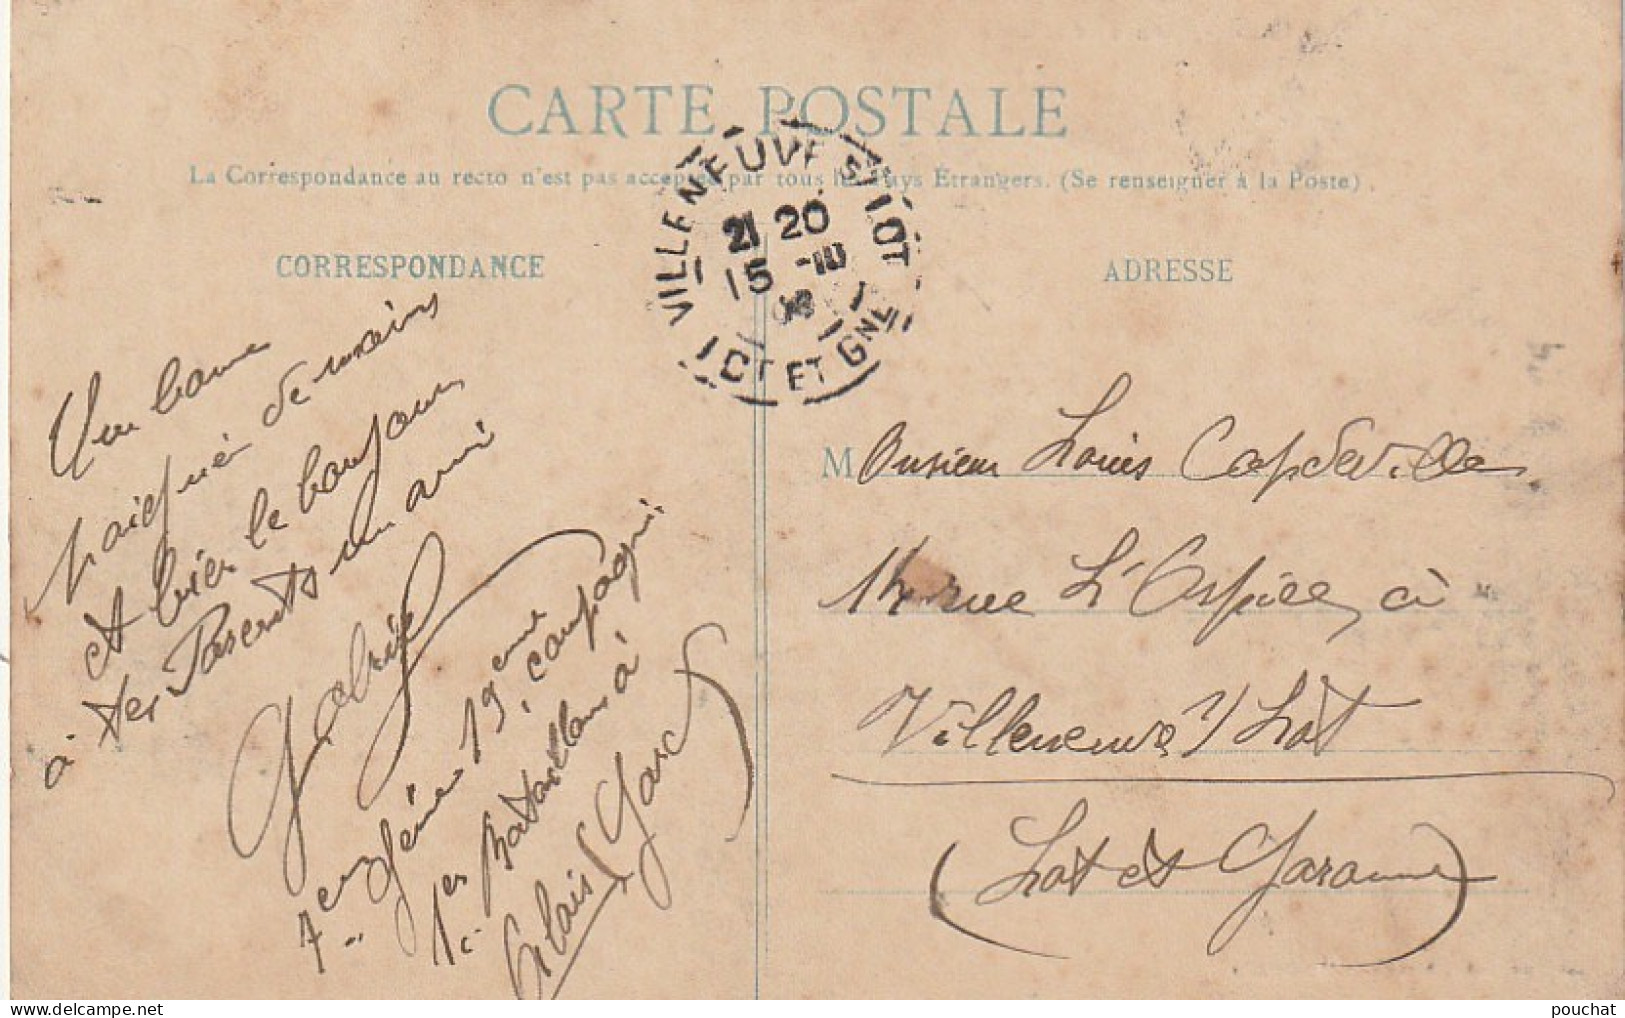 CARTE POSTALE
La Correspondance au recto n'est pas acceptée par tous les Pays Étrangers. (Se renseigner à la Poste)
CORRESPONDANCE
ADRESSE
VILLENEUVE S/LOT
21 20
15 -10
LOT ET GNE
Une bonne
poignée de mains
et bien le bonjour
à tes Parents ton ami
Gabriel
7em Génie 19eme compagnie
1er Bataillon à
Alais Gard
Monsieur Louis Capdeville
14 rue L'Ospice, à
Villeneuve s/ Lot
(Lot et Garonne)
pouchat